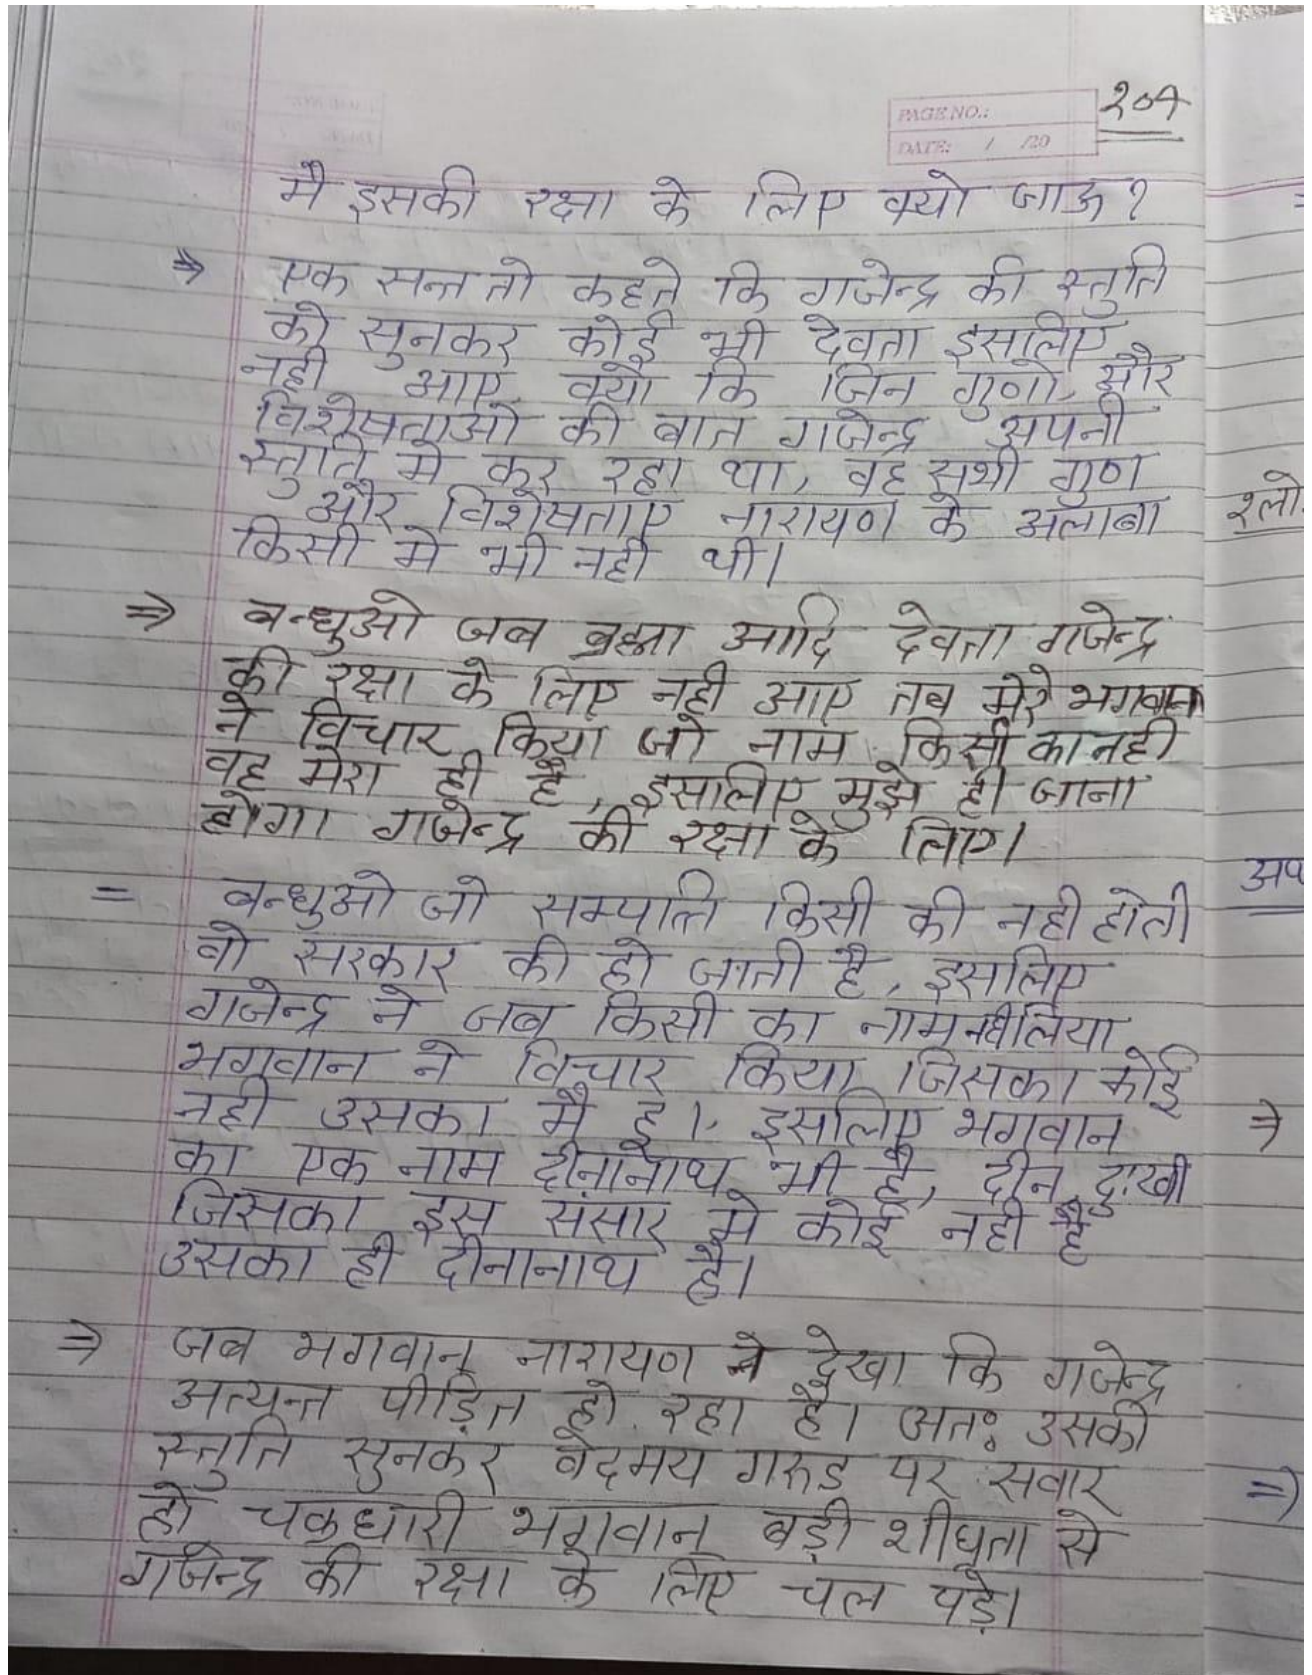 PAGE NO.:
DATE: / /20
मै इसकी रक्षा के लिए क्यो जाऊ?
⇒ एक सन्त तो कहते कि गजेन्द्र की स्तुति
को सुनकर कोई भी देवता इसलिए
नही आए क्यो कि जिन गुणो और
विशेषताओ की बात गजेन्द्र अपनी
स्तुति मे कर रहा था, वह सभी गुण
और विशेषताए नारायण के अलाबा
किसी मे भी नही थी।
⇒ बन्धुओ जब ब्रह्मा आदि देवता गजेन्द्र
की रक्षा के लिए नही आए तब मेरे भगवान
ने विचार किया जो नाम किसी का नही
वह मेरा ही है, इसलिए मुझे ही जाना
होगा गजेन्द्र की रक्षा के लिए।
= बन्धुओ जो सम्पत्ति किसी की नही होती
वो सरकार की हो जाती है, इसलिए
गजेन्द्र ने जब किसी का नाम नही लिया
भगवान ने विचार किया जिसका कोई
नही उसका मै हू। इसलिए भगवान
का एक नाम दीनानाथ भी है, दीन दुःखी
जिसका इस संसार मे कोई नही है
उसका ही दीनानाथ है।
⇒ जब भगवान नारायण ने देखा कि गजेन्द्र
अत्यन्त पीड़ित हो रहा है। अतः उसकी
स्तुति सुनकर वेदमय गरुड पर सवार
हो चक्रधारी भगवान बड़ी शीघ्रता से
गजेन्द्र की रक्षा के लिए चल पड़े।
श्लो
अप
⇒
⇒